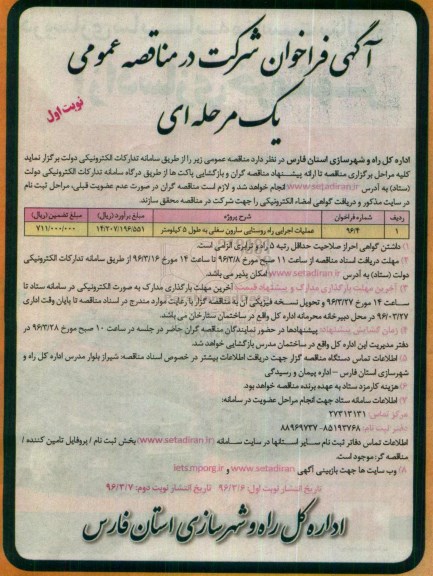 آگهی فراخوان شرکت در مناقصه عمومی
یک مرحله ای
نوبت اول
اداره کل راه و شهرسازی استان فارس در نظر دارد مناقصه عمومی زیر را از طریق سامانه تدارکات الکترونیکی دولت برگزار نماید
کلیه مراحل برگزاری مناقصه تا ارائه پیشنهاد مناقصه گران و بازگشایی پاکت ها از طریق درگاه سامانه تدارکات الکترونیکی دولت
(ستاد) به آدرس www.setadiran.ir انجام خواهد شد و لازم است مناقصه گران در صورت عدم عضویت قبلی، مراحل ثبت نام
در سایت مذکور و دریافت گواهی امضاء الکترونیکی را جهت شرکت در مناقصه محقق سازند
ردیف شماره فراخوان شرح پروژه مبلغ برآورد (ریال) مبلغ تضمین (ریال)
۱ ۹۶/۴ عملیات اجرایی راه روستایی سارون سفلی به طول ۵ کیلومتر ۱۴/۲۰۷/۱۹۶/۵۵۱ ۷۱۱/۰۰۰/۰۰۰
۱) داشتن گواهی احراز صلاحیت حداقل رتبه ۵ راه و ترابری الزامی است.
۲) مهلت دریافت اسناد مناقصه از ساعت ۱۱ صبح مورخ ۹۶/۳/۸ تا ساعت ۱۴ مورخ ۹۶/۳/۱۶ از طریق سامانه تدارکات الکترونیکی
دولت (ستاد) به آدرس www.setadiran.ir امکان پذیر می باشد.
۳) آخرین مهلت بارگذاری مدارک و پیشنهاد قیمت: آخرین مهلت بارگذاری مدارک به صورت الکترونیکی در سامانه ستاد تا
ساعت ۱۴ مورخ ۹۶/۳/۲۷ و تحویل نسخه فیزیکی آن به مناقصه گزار با رعایت موارد مندرج در اسناد مناقصه تا پایان وقت اداری
۹۶/۰۳/۲۷ در محل دبیرخانه محرمانه اداره کل واقع در ساختمان ستارخان می باشد.
۴) زمان گشایش پیشنهاد: پیشنهادها در حضور نمایندگان مناقصه گران حاضر در جلسه در ساعت ۱۰ صبح مورخ ۹۶/۳/۲۸ در
دفتر مدیریت این اداره کل واقع در ساختمان مدرس بازگشایی خواهد شد.
۵) اطلاعات تماس دستگاه مناقصه گزار جهت دریافت اطلاعات بیشتر در خصوص اسناد مناقصه: شیراز بلوار مدرس اداره کل راه و
شهرسازی استان فارس – اداره پیمان و رسیدگی
۶) هزینه کارمزد ستاد به عهده برنده مناقصه خواهد بود.
۷) اطلاعات سامانه ستاد جهت انجام مراحل عضویت در سامانه:
مرکز تماس: ۲۷۳۱۳۱۳۱
دفتر ثبت نام: ۸۵۱۹۳۷۶۸-۸۸۹۶۹۷۳۷
اطلاعات تماس دفاتر ثبت نام سایر استانها در سایت سامانه (www.setadiran.ir) بخش ثبت نام / پروفایل تامین کننده /
مناقصه گر: موجود است.
۸) وب سایت ها جهت بازبینی آگهی www.setadiran.ir و iets.mporg.ir
تاریخ انتشار نوبت اول: ۹۶/۳/۶ تاریخ انتشار نوبت دوم: ۹۶/۳/۷
اداره کل راه و شهرسازی استان فارس